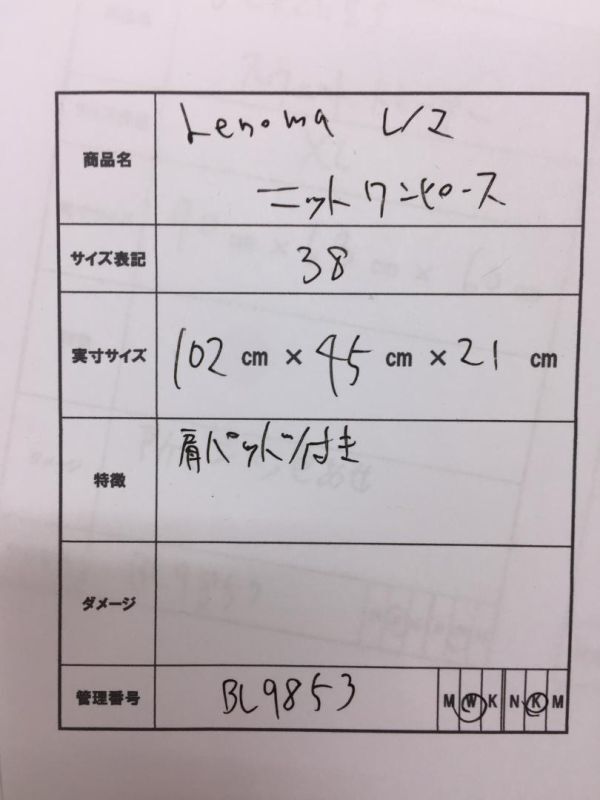 商品名 Lenoma レノマ
ニットワンピース
サイズ表記 38
実寸サイズ 102 cm × 45 cm × 21 cm
特徴 肩パット付き
ダメージ
管理番号 BL9853 M W K N K M